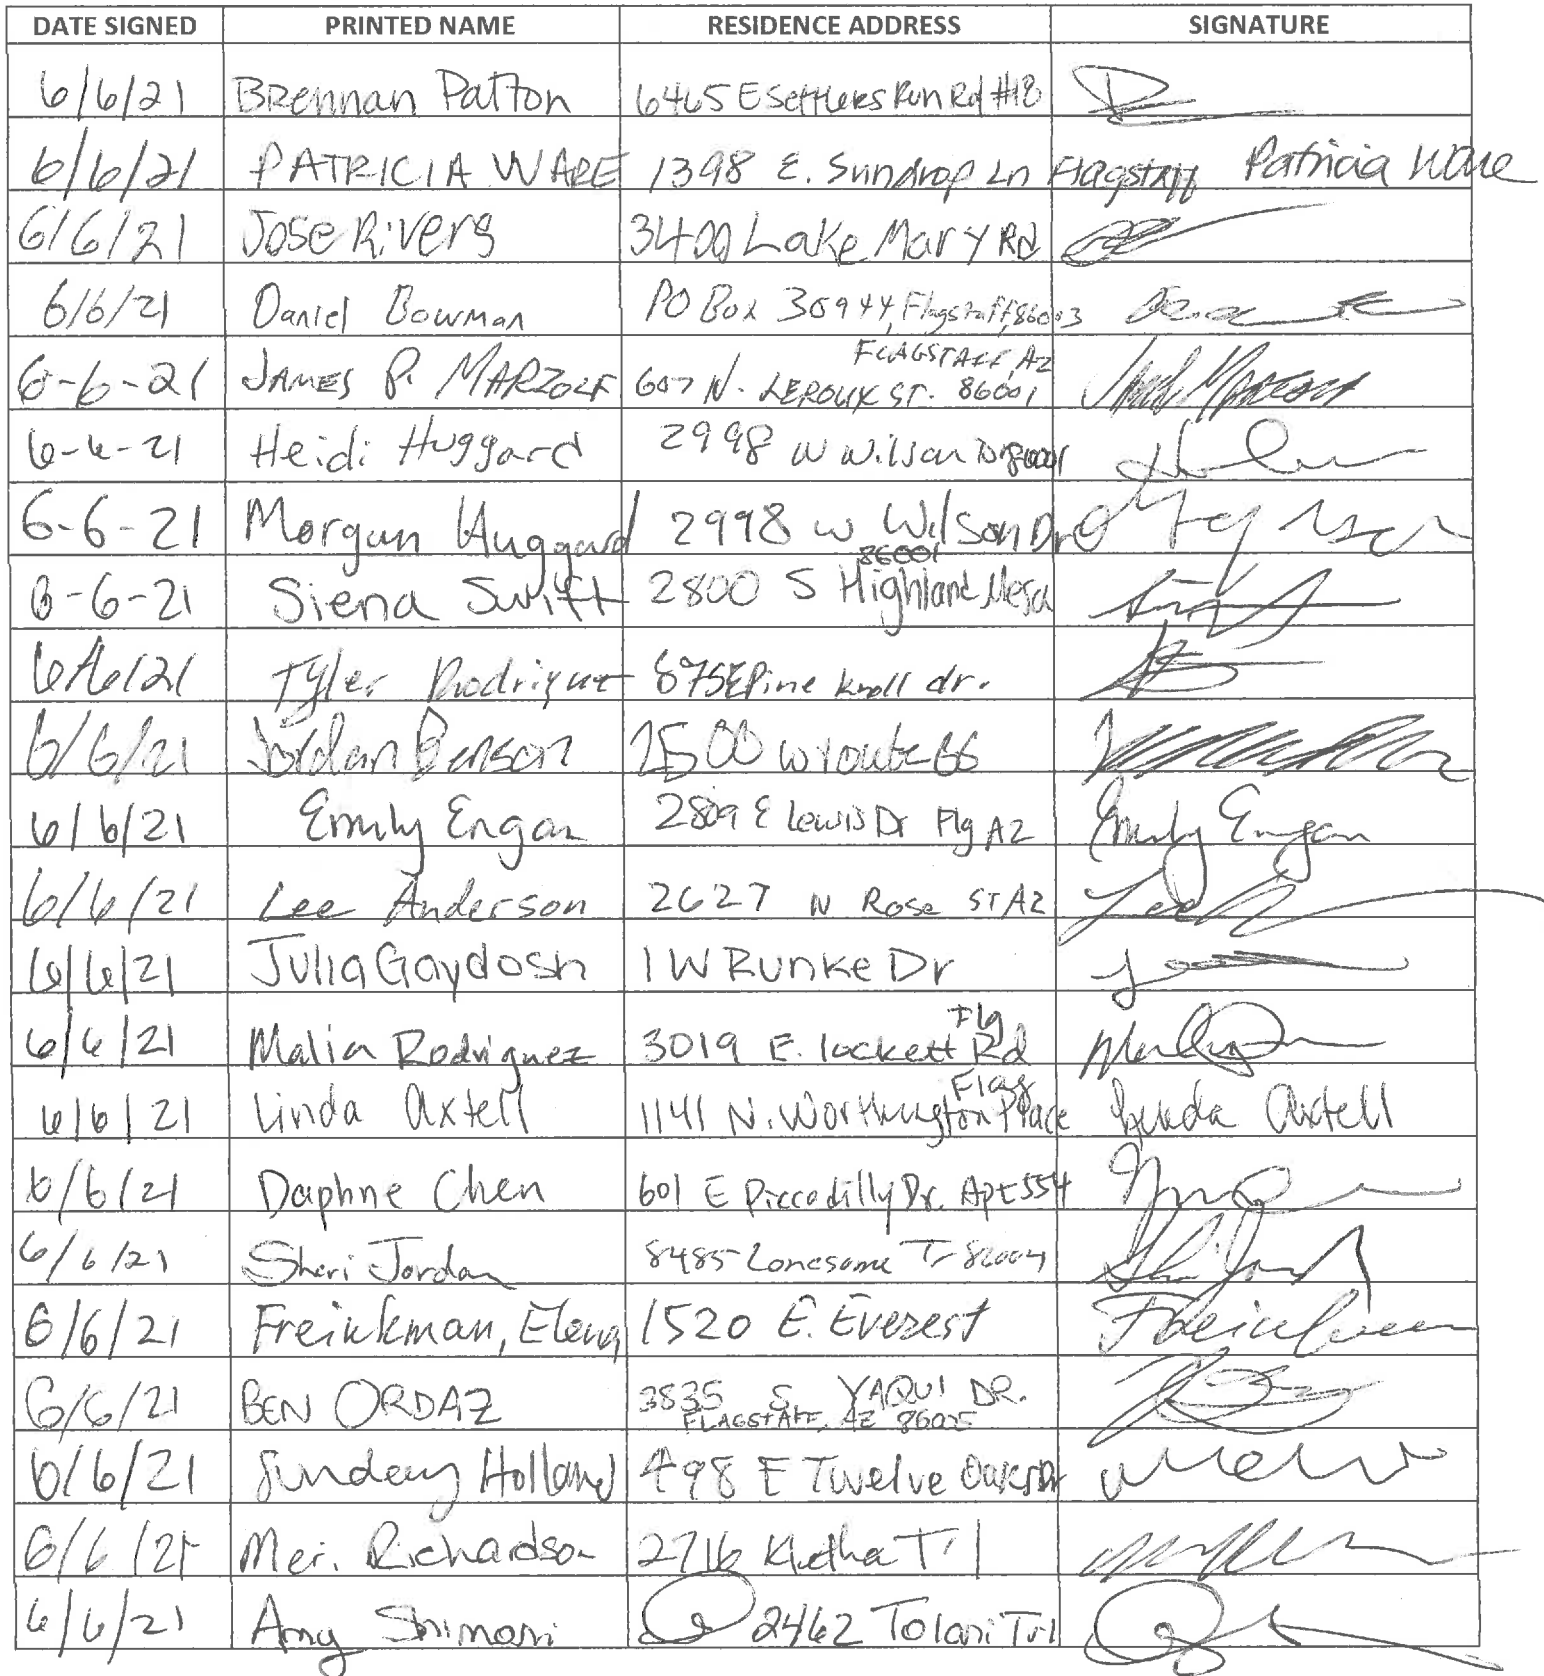 DATE SIGNED PRINTED NAME RESIDENCE ADDRESS SIGNATURE
6/6/21 Brennan Patton 6465 E Settlers Run Rd #18
6/6/21 PATRICIA WARE 1398 E. Sundrop Ln Flagstaff Patricia Ware
6/6/21 Jose Rivers 3400 Lake Mary Rd
6/6/21 Daniel Bowman PO Box 30944, Flagstaff, 86003
FLAGSTAFF, AZ
6-6-21 JAMES P. MARZOLF 607 N. LEROUX ST. 86001
6-6-21 Heidi Huggard 2998 W Wilson Dr 86001
6-6-21 Morgan Huggard 2998 W Wilson Dr
86001
6-6-21 Siena Swift 2800 S Highland Mesa
6/6/21 Tyler 875 E Pine Knoll dr.
6/6/21 Jordan Benson 2500 W route 66
6/6/21 Emily Engan 2809 E Lewis Dr Flg AZ Emily Engan
6/6/21 Lee Anderson 2627 N Rose ST AZ Lee
6/6/21 Julia Gaydosh 1 W Runke Dr
Flg
6/6/21 Malia Rodriguez 3019 E. lockett Rd
Flag
6/6/21 Linda Axtell 1141 N. Worthington Place Linda Axtell
6/6/21 Daphne Chen 601 E Piccadilly Dr. Apt 554
6/6/21 Sheri Jordan 8485 Lonesome Tr 86004
6/6/21 Freinkman, Elena 1520 E. Everest Freinkman
6/6/21 BEN ORDAZ 3535 S. YAQUI DR.
FLAGSTAFF, AZ 86005
6/6/21 Holland 498 E Twelve Oaks Dr
6/6/21 Meri Richardson 2716 Trl
6/6/21 Amy Shimoni 2462 Tolani Trl